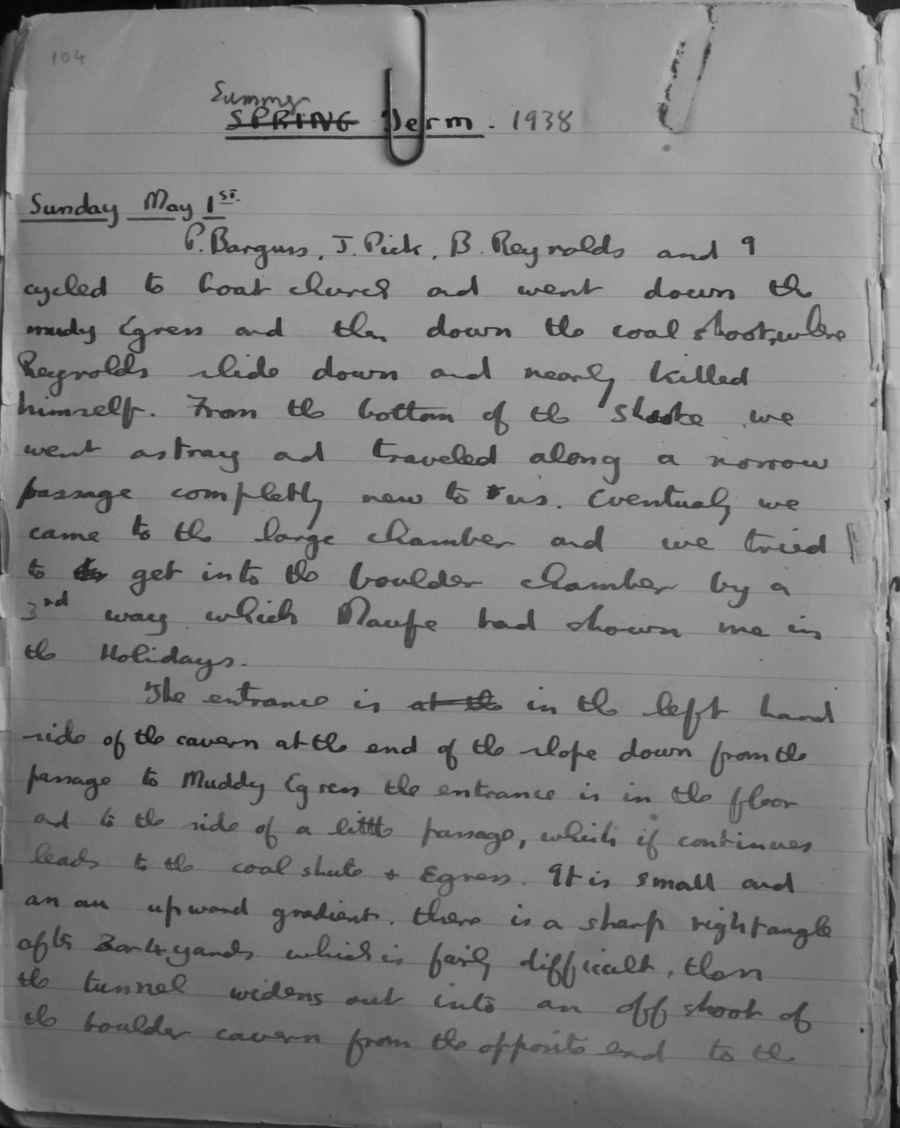 104
Summer
SPRING Term. 1938
Sunday May 1st.
P. Barguss, J. Pick, B. Reynolds and I
cycled to Goat church and went down the
mudy Egress and then down the coal shoot, where
Reynolds slide down and nearly killed
himself. From the bottom of the shoote we
went astray and traveled along a norrow
passage completly new to us. Eventualy we
came to the large chamber and we tried
to get into the boulder chamber by a
3rd way which Maufe had shown me in
the Holidays.
The entrance is at the in the left hand
side of the cavern at the end of the slope down from the
passage to Muddy Egress the entrance is in the floor
and to the side of a little passage, which if continues
leads to the coal shute + Egress. It is small and
an an upward gradient. there is a sharp right angle
after 3 or 4 yards which is fairly difficult, then
the tunnel widens out into an off shoot of
the boulder cavern from the opposite end to the